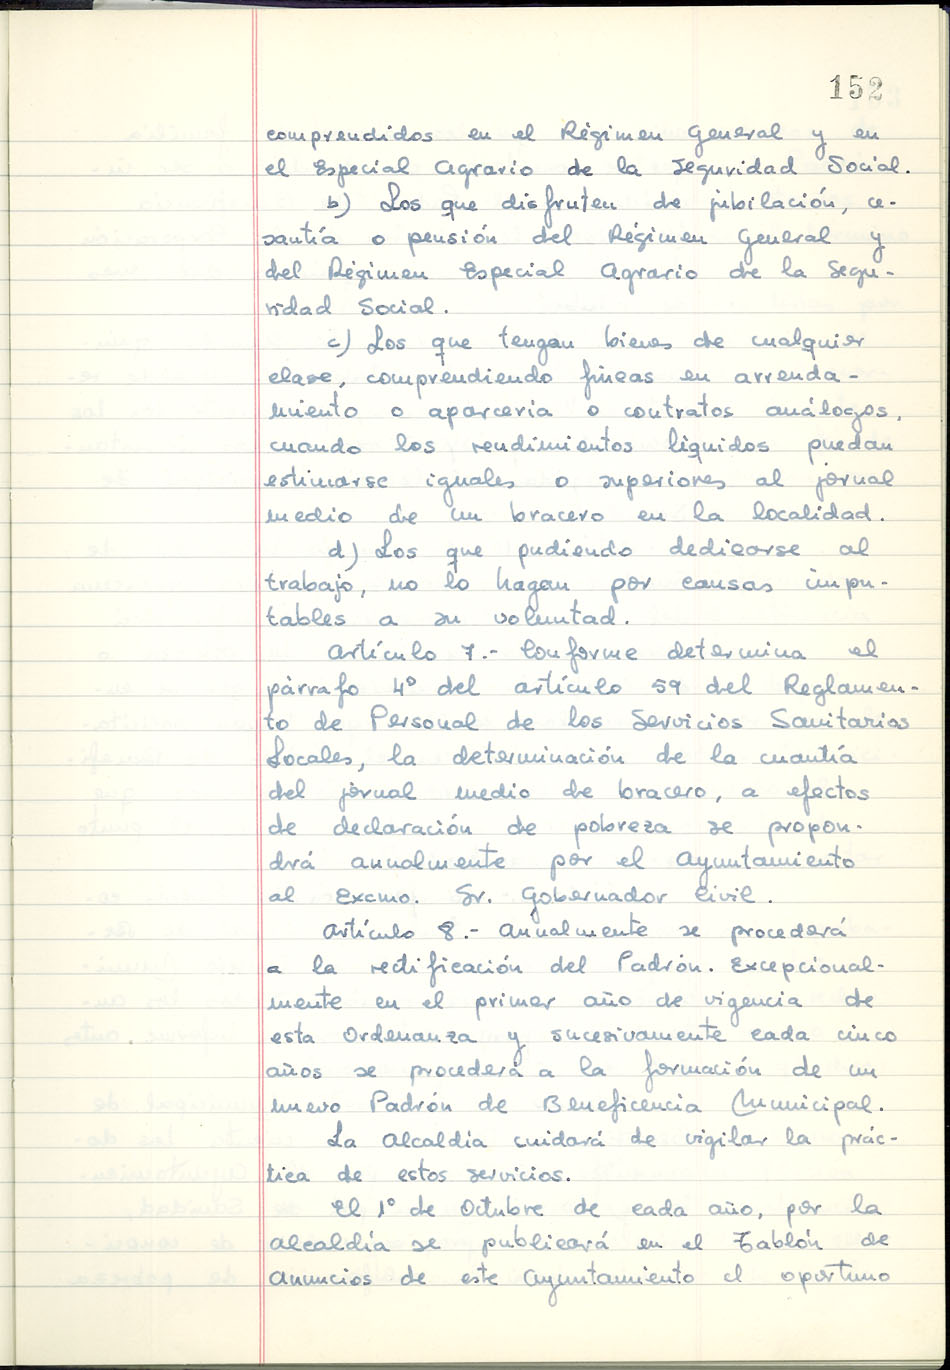 152
comprendidos en el Régimen General y en
el Especial Agrario de la Seguridad Social.
b) Los que disfruten de jubilación, ce-
santía o pensión del Régimen General y
del Régimen Especial Agrario de la Segu-
ridad Social.
c) Los que tengan bienes de cualquier
clase, comprendiendo fincas en arrenda-
miento o aparceria o contratos análogos,
cuando los rendimientos líquidos puedan
estimarse iguales o superiores al jornal
medio de un bracero en la localidad.
d) Los que pudiendo dedicarse al
trabajo, no lo hagan por causas impu-
tables a su voluntad.
Artículo 7.- Conforme determina el
párrafo 4º del artículo 59 del Reglamen-
to de Personal de los Servicios Sanitarios
Locales, la determinación de la cuantía
del jornal medio de bracero, a efectos
de declaración de pobreza se propon-
drá anualmente por el Ayuntamiento
al Excmo. Sr. Gobernador Civil.
Artículo 8.- Anualmente se procederá
a la rectificación del Padrón. Excepcional-
mente en el primer año de vigencia de
esta Ordenanza y sucesivamente cada cinco
años se procederá a la formación de un
nuevo Padrón de Beneficencia Municipal.
La Alcaldía cuidará de vigilar la prác-
tica de estos servicios.
El 1º de Octubre de cada año, por la
Alcaldía se publicará en el Tablón de
Anuncios de este Ayuntamiento el oportuno